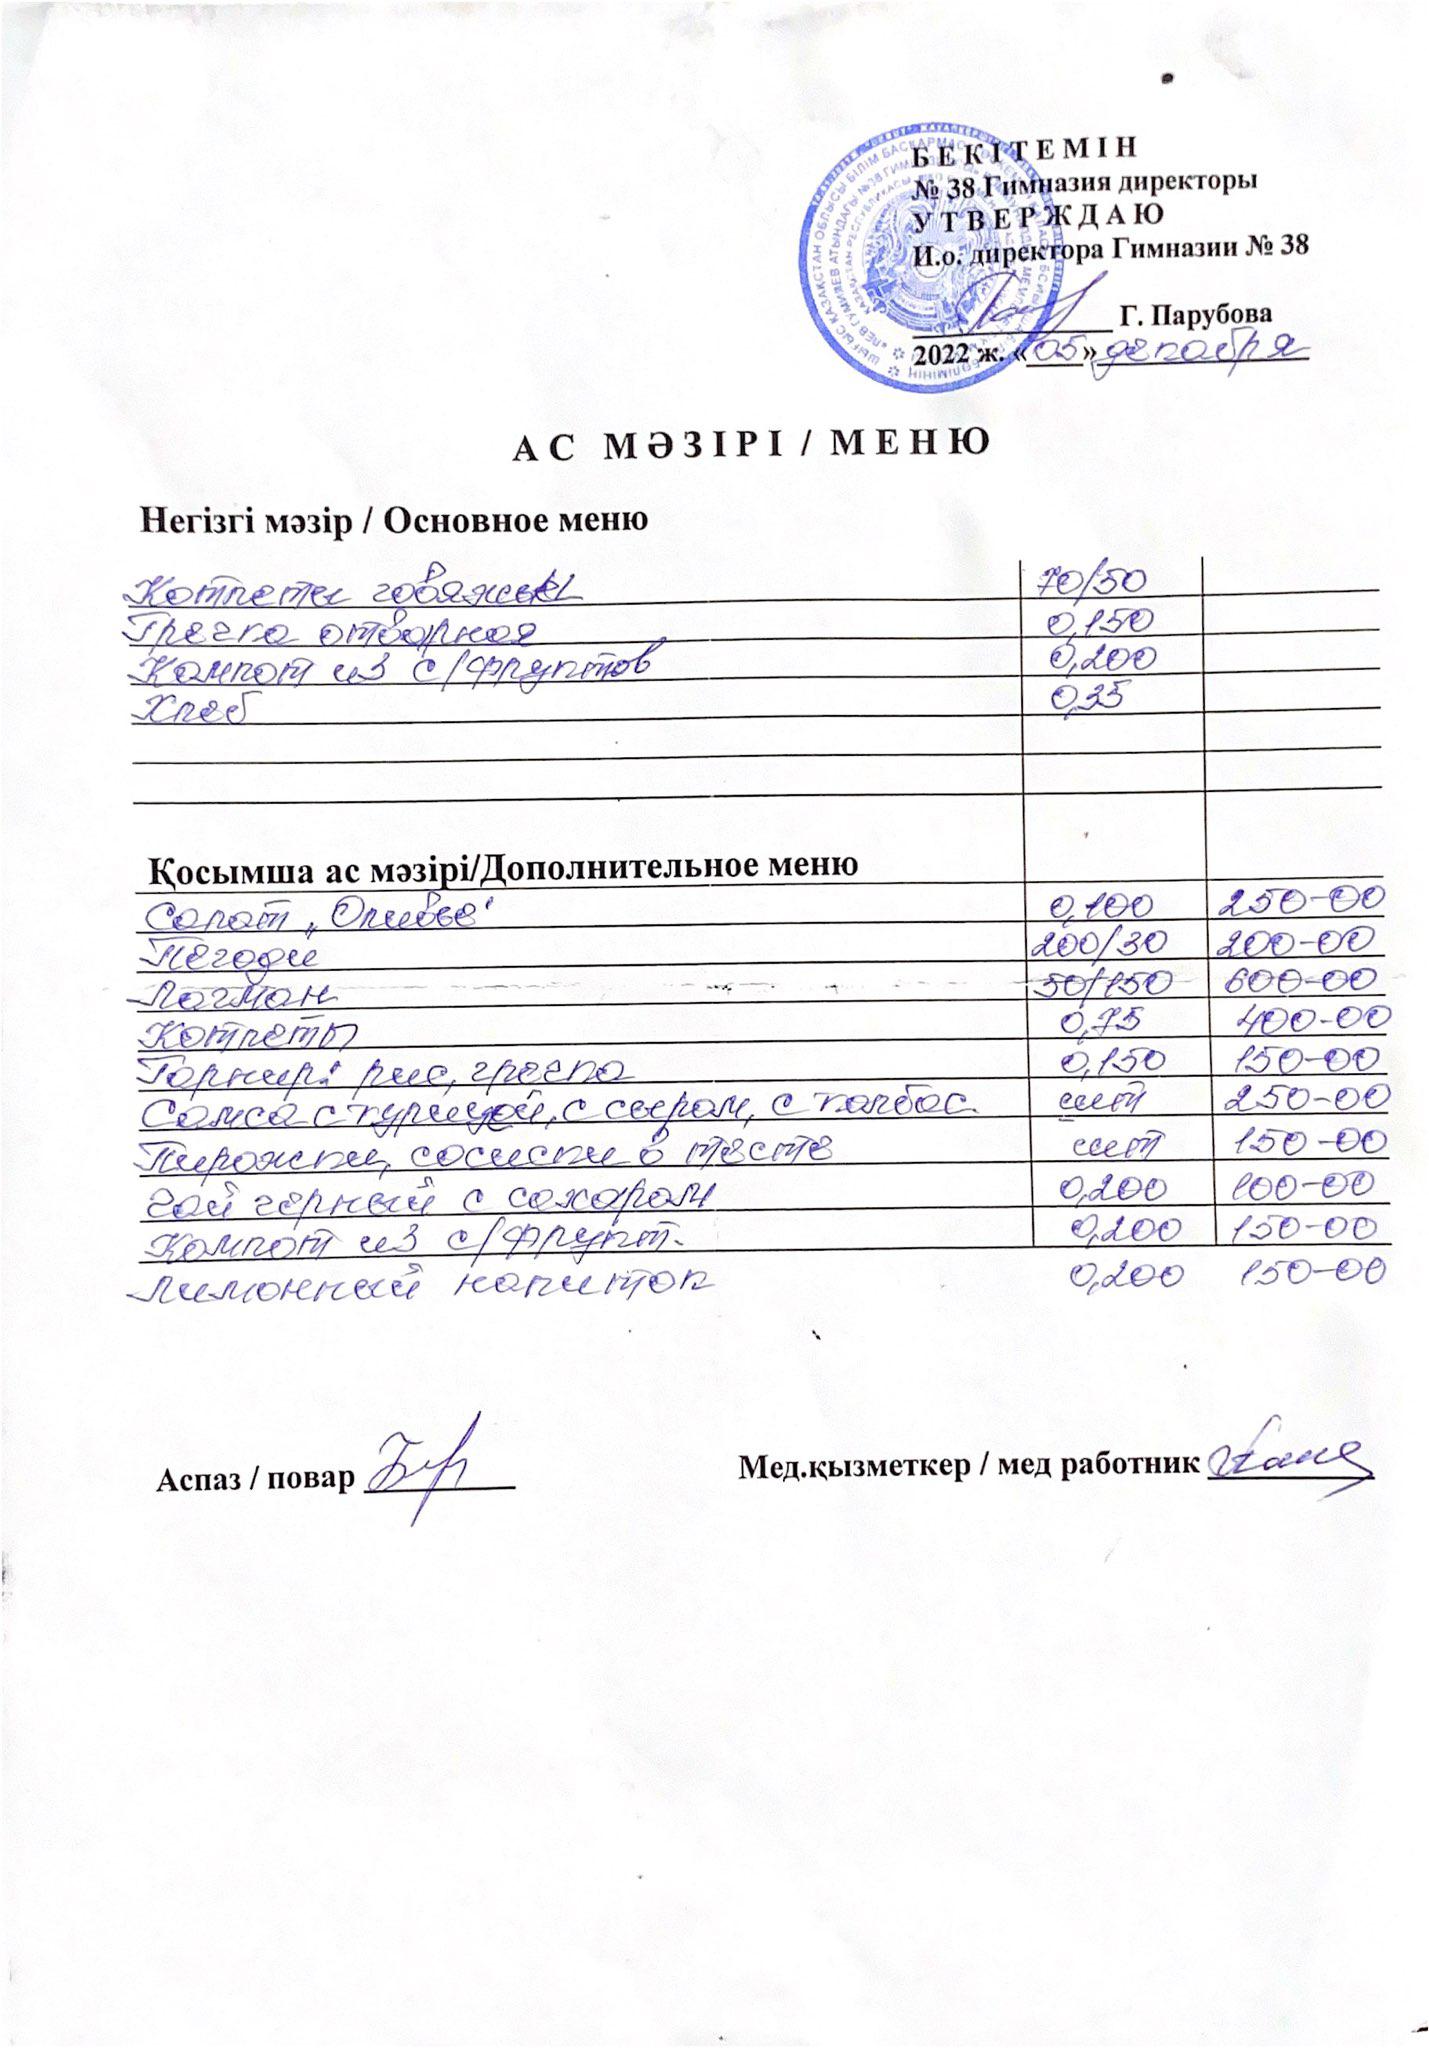 Б Е К І Т Е М І Н
№ 38 Гимназия директоры
У Т В Е Р Ж Д А Ю
И.о. директора Гимназии № 38
Г. Парубова
2022 ж. «05» декабря
А С М Ә З І Р І / М Е Н Ю
Негізгі мәзір / Основное меню
Котлеты говяжьи 70/50
Гречка отварная 0,150
Компот из с/фруктов 0,200
Хлеб 0,35
Қосымша ас мәзірі/Дополнительное меню
Салат „Оливье" 0,100 250-00
200/30 200-00
Лагман 50/150 600-00
Котлеты 0,75 400-00
Гарнир: рис, гречка 0,150 150-00
Самса с курицей, с сыром, с колбас. шт 250-00
Пирожки, сосиски в тесте шт 150-00
Чай чёрный с сахаром 0,200 100-00
Компот из с/фрукт. 0,200 150-00
Лимонный напиток 0,200 150-00
Аспаз / повар Мед.қызметкер / мед работник